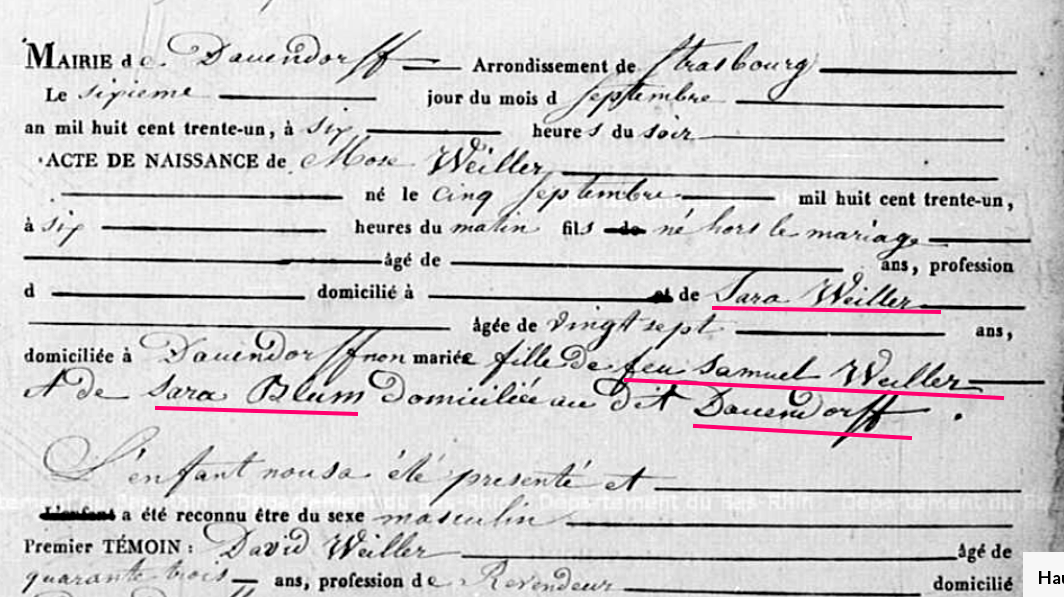 MAIRIE de Dauendorff Arrondissement de Strasbourg
Le sixieme jour du mois d Septembre
an mil huit cent trente-un, à six heures du soir
ACTE DE NAISSANCE de Mose Weiller
né le cinq Septembre mil huit cent trente-un,
à six heures du matin fils de né hors le mariage
âgé de ans, profession
d domicilié à et de Sara Weiller
âgée de vingt sept ans,
domiciliée à Dauendorff non mariée fille de feu Samuel Weiller
et de Sara Blum domiciliée au dit Dauendorff.
L'enfant nous a été presenté et
Département du Bas-Rhin Département du Bas-Rhin Département du Bas-Rhin
L'enfant a été reconnu être du sexe masculin
Premier TÉMOIN: David Weiller âgé de
quarante trois ans, profession de Revendeur domicilié
Hau